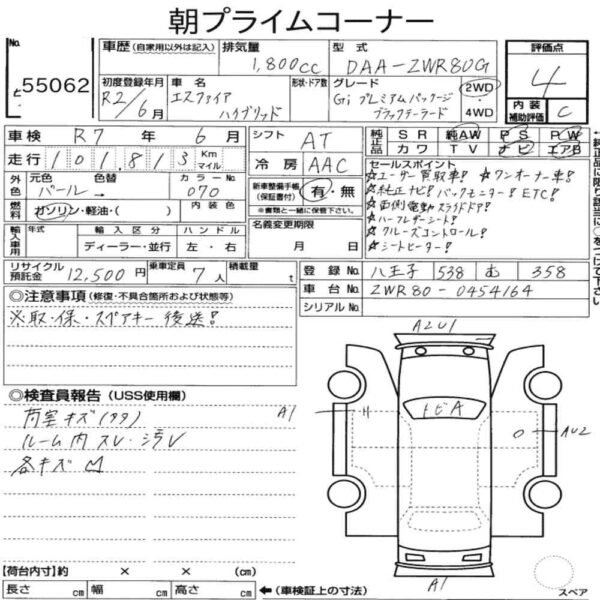 朝プライムコーナー
No. 55062
車歴 (自家用以外は記入) 排気量 1,800cc 型式 DAA-ZWR80G 評価点 4
初度登録年月 R2/6月 車名 エスクァイア ハイブリッド 形状・ドア数 グレード Gi プレミアムパッケージ ブラックテーラード 2WD・4WD 内装補助評価 C
車検 R7年6月 シフト AT 純正品 SR 純AW PS PW
カワ TV ナビ エアB
走行 101,813 Km マイル 冷房 AAC
外色 元色 パール→ 色替 カラーNo. 070 新車整備手帳(保証書付) 有・無 ※書類と一緒に保管下さい。
燃料 ガソリン・軽油・( ) 内装色
輸入車用 年式 輸入区分 ディーラー・並行 ハンドル 左・右 名義変更期限 月 日
セールスポイント
☆ユーザー買取車! ☆ワンオーナー車!
☆純正ナビ! バックモニター! ETC!
☆両側電動スライドドア!
☆ハーフレザーシート!
☆クルーズコントロール!
☆シートヒーター!
リサイクル預託金 12,500円 乗車定員 7人 積載量 t
登録No. 八王子 538 む 358
車台No. ZWR80-0454164
シリアルNo.
◎注意事項 (修復・不具合箇所および状態等)
※取・保・スペアキー後送!
◎検査員報告 (USS使用欄)
荷室キズ(クラ)
ルーム内スレ・汚レ
各キズ凹
A2U1
トビA
A1
AU2
A1
【荷台内寸】約 × × (cm)
長さ cm 幅 cm 高さ cm ←(車検証上の寸法)
スペア